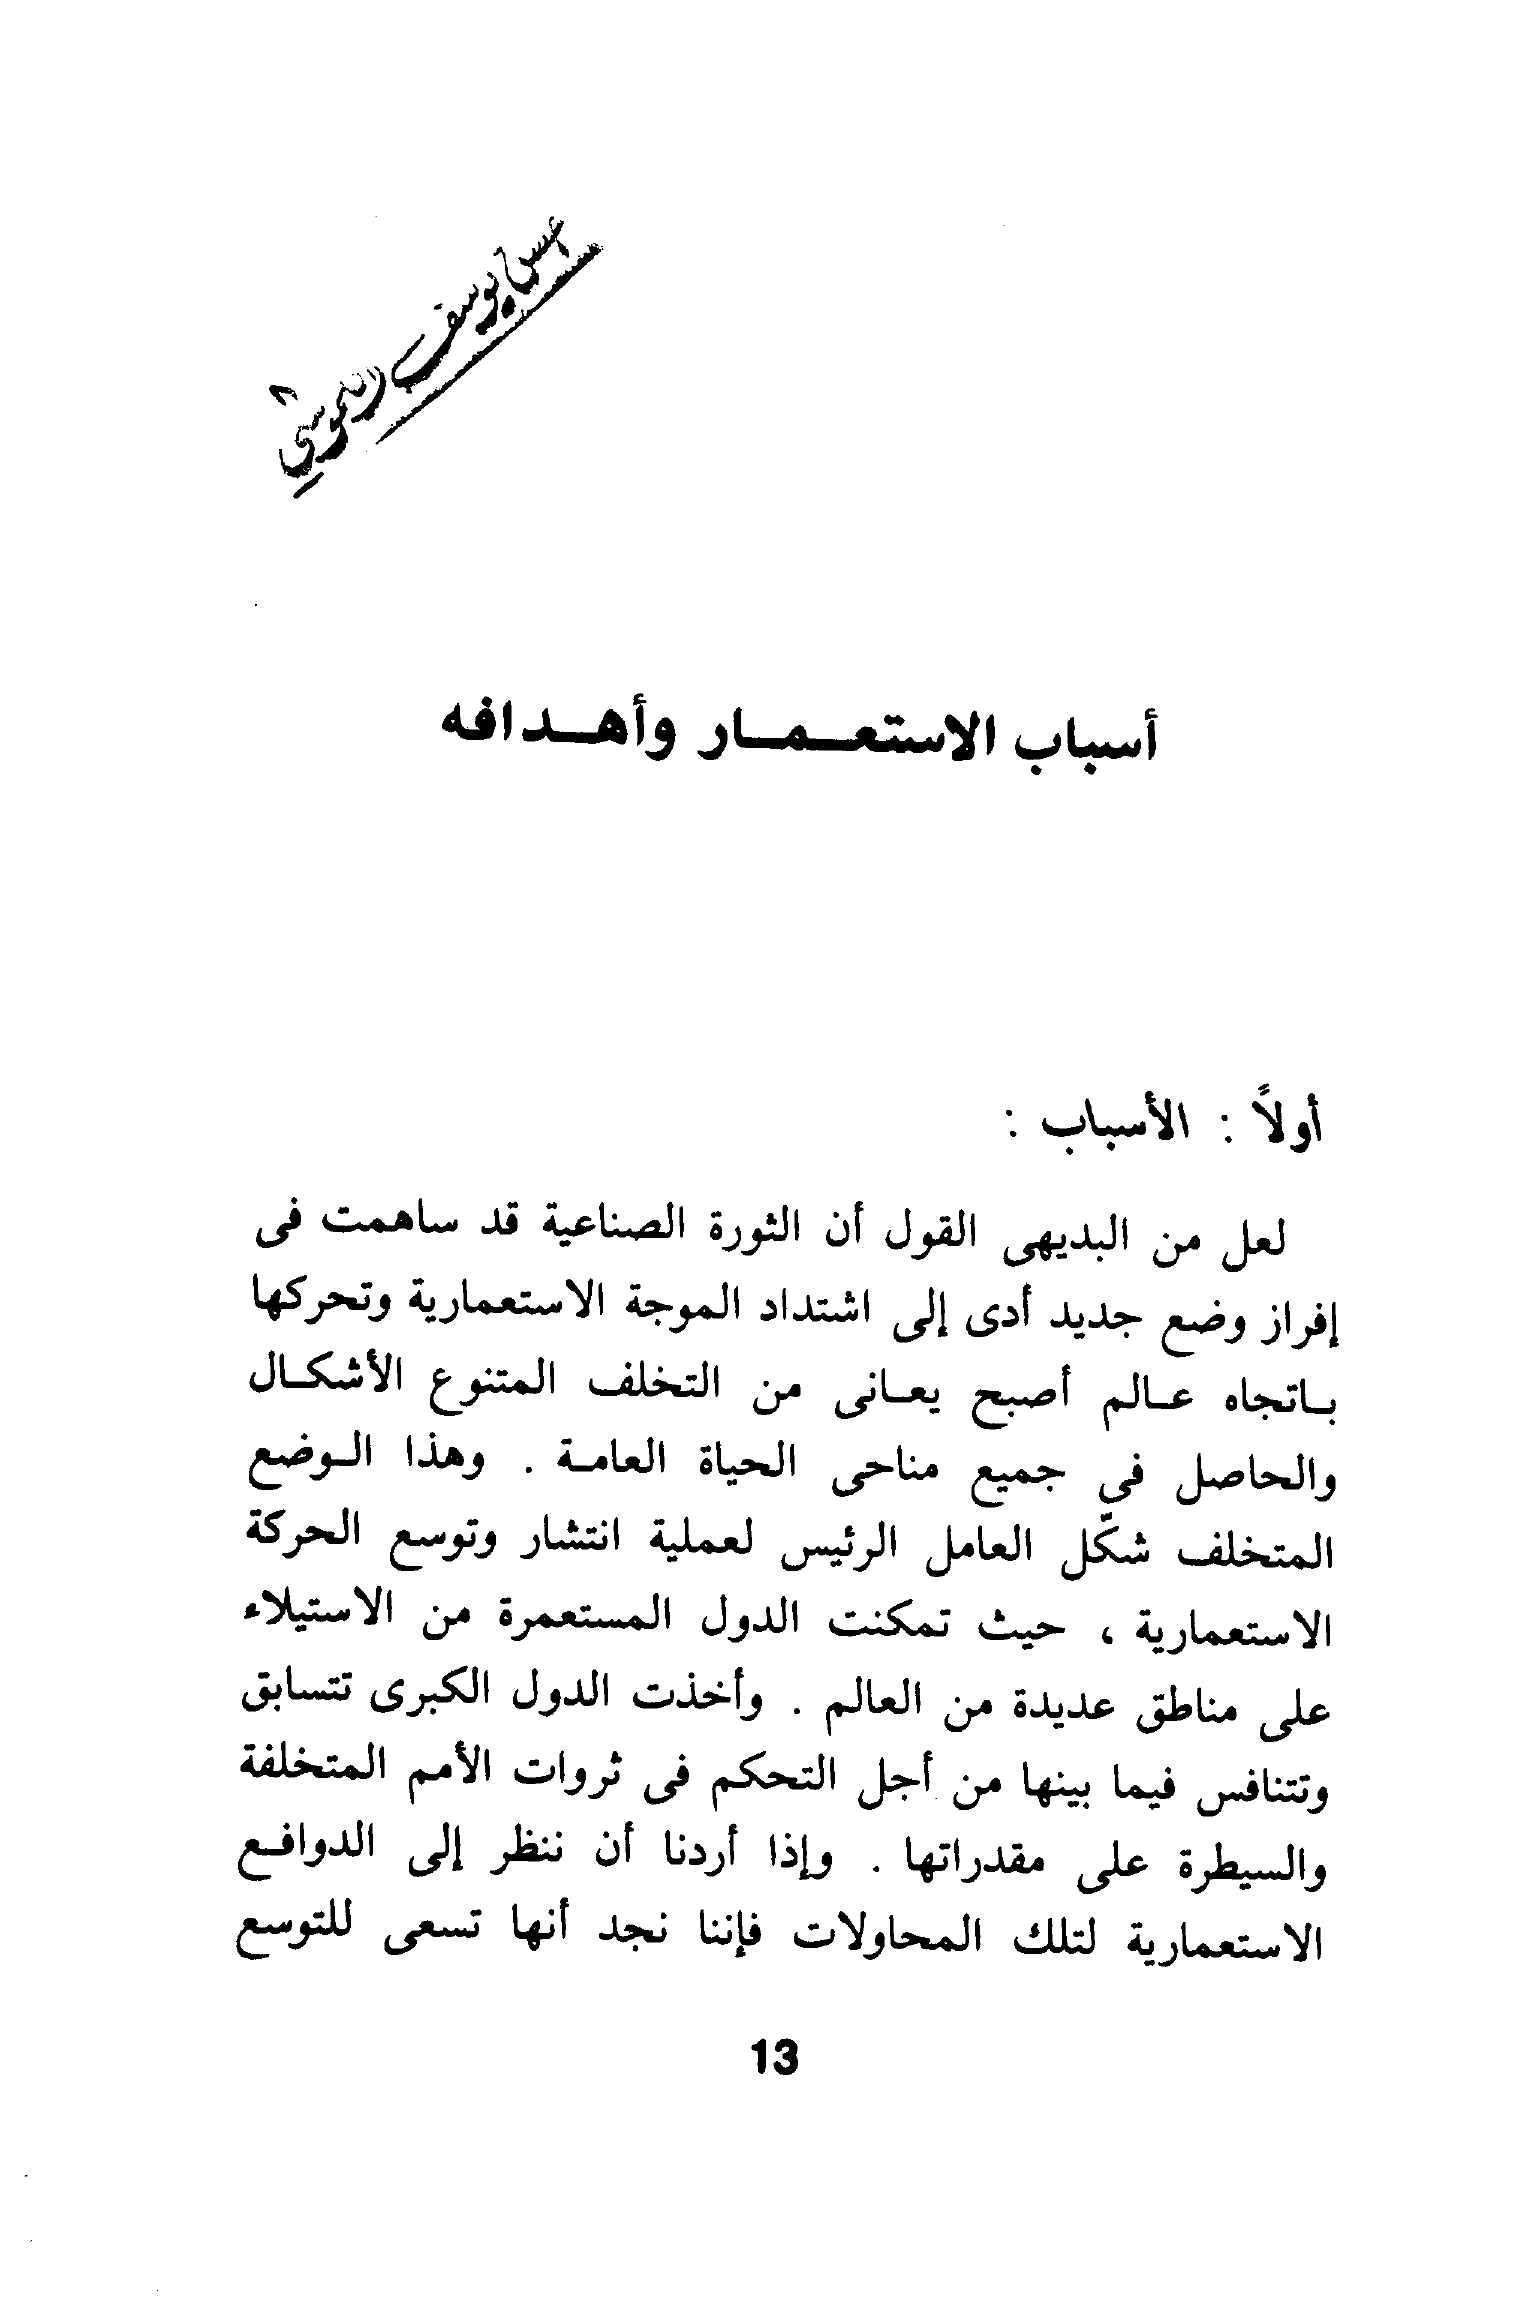 يوسف
أسباب الاستعمار وأهدافه
أولاً : الأسباب :
لعل من البديهى القول أن الثورة الصناعية قد ساهمت فى
إفراز وضع جديد أدى إلى اشتداد الموجة الاستعمارية وتحركها
باتجاه عالم أصبح يعانى من التخلف المتنوع الأشكال
والحاصل في جميع مناحى الحياة العامة . وهذا الوضع
المتخلف شكّل العامل الرئيس لعملية انتشار وتوسع الحركة
الاستعمارية ، حيث تمكنت الدول المستعمرة من الاستيلاء
على مناطق عديدة من العالم . وأخذت الدول الكبرى تتسابق
وتتنافس فيما بينها من أجل التحكم فى ثروات الأمم المتخلفة
والسيطرة على مقدراتها . وإذا أردنا أن ننظر إلى الدوافع
الاستعمارية لتلك المحاولات فإننا نجد أنها تسعى للتوسع
13